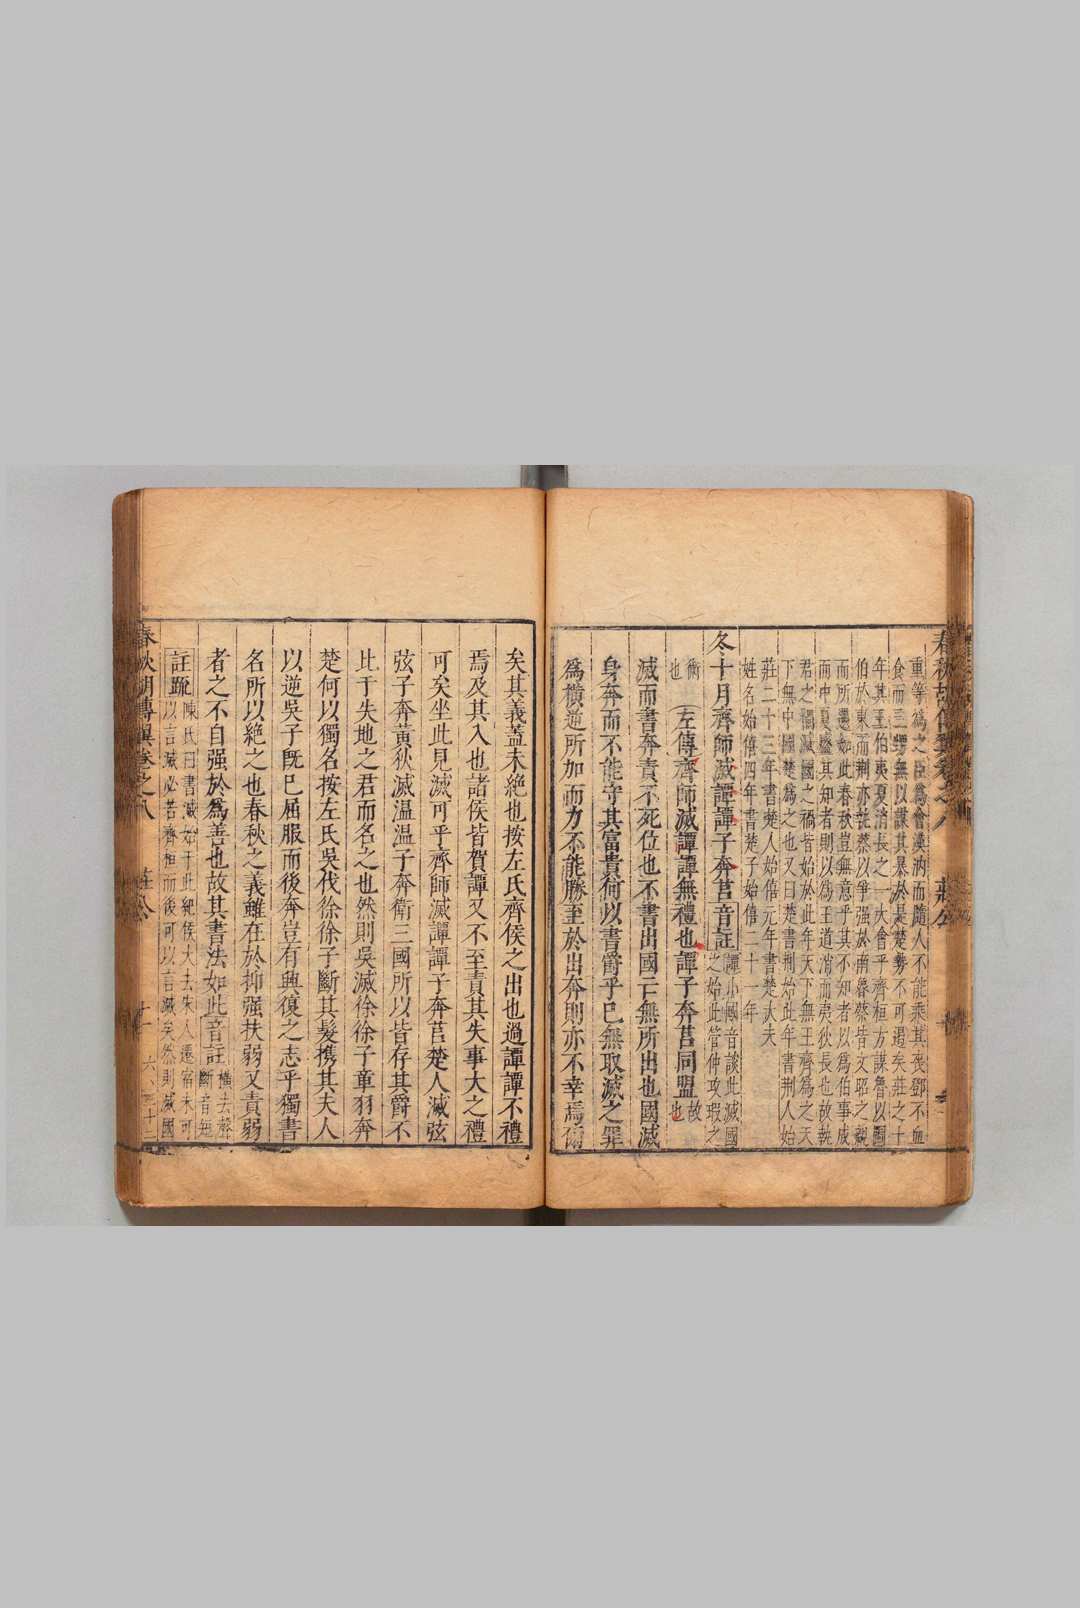 春秋胡傳翼卷之八 莊公
重等爲之臣爲會漢汭而隨人不能乘其喪鄧不血
食而三甥無以謀其暴於是楚勢不可遏矣莊之十
年其王伯夷夏消長之一大會乎齊桓方謀魯以圖
伯於東而荆亦旣蔡以爭强於南暮蔡皆文昭之親
而所遇如此春秋豈無意乎其不知者以爲伯事成
而中夏盛其知者則以爲王道消而夷狄長也故執
君之禍滅國之禍皆始於此年天下無王齊爲之天
下無中國楚爲之也又曰楚書荆始此年書荆人始
莊二十三年書楚人始僖元年書楚大夫
姓名始僖四年書楚子始僖二十一年
冬十月齊師滅譚譚子奔莒音註 譚小國音談此滅國
之始此管仲攻瑕之
術
也 左傳齊師滅譚譚無禮也譚子奔莒同盟故
也
滅而書奔責不死位也不書出國亡無所出也國滅
身奔而不能守其富貴何以書爵乎已無取滅之罪
爲橫逆所加而力不能勝至於出奔則亦不幸焉爾
矣其義蓋未絶也按左氏齊侯之出也過譚譚不禮
焉及其入也諸侯皆賀譚又不至責其失事大之禮
可矣坐此見滅可乎齊師滅譚譚子奔莒楚人滅弦
弦子奔黄狄滅温温子奔衛三國所以皆存其爵不
比于失地之君而名之也然則吳滅徐徐子章羽奔
楚何以獨名按左氏吳伐徐徐子斷其髮携其夫人
以逆吳子旣已屈服而後奔豈有興復之志乎獨書
名所以絶之也春秋之義雖在於抑强扶弱又責弱
者之不自强於爲善也故其書法如此音註 橫去聲
斷音短
註疏 陳氏曰書滅始于此紀侯大去宋人遷宿未可
以言滅必若齊桓而後可以言滅矣然則滅國
春秋胡傳翼卷之八 莊公 十一